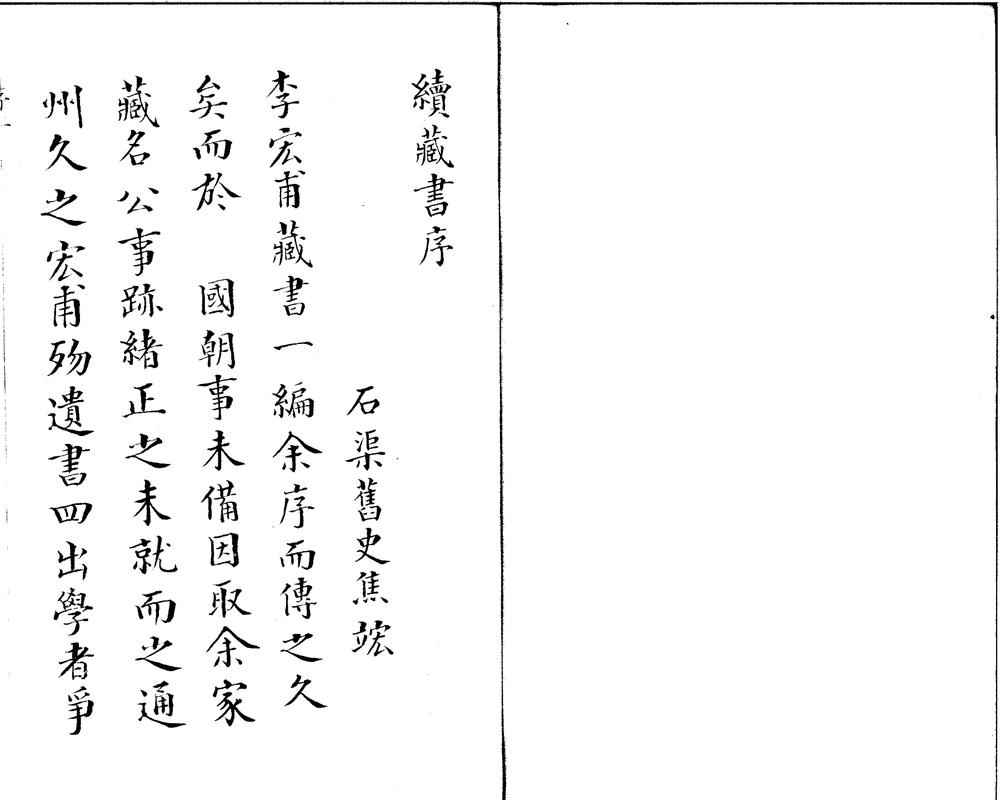 續藏書序
石渠舊史焦竑
李宏甫藏書一編余序而傳之久
矣而於 國朝事未備因取余家
藏名公事跡緒正之未就而之通
州久之宏甫歾遺書四出學者爭